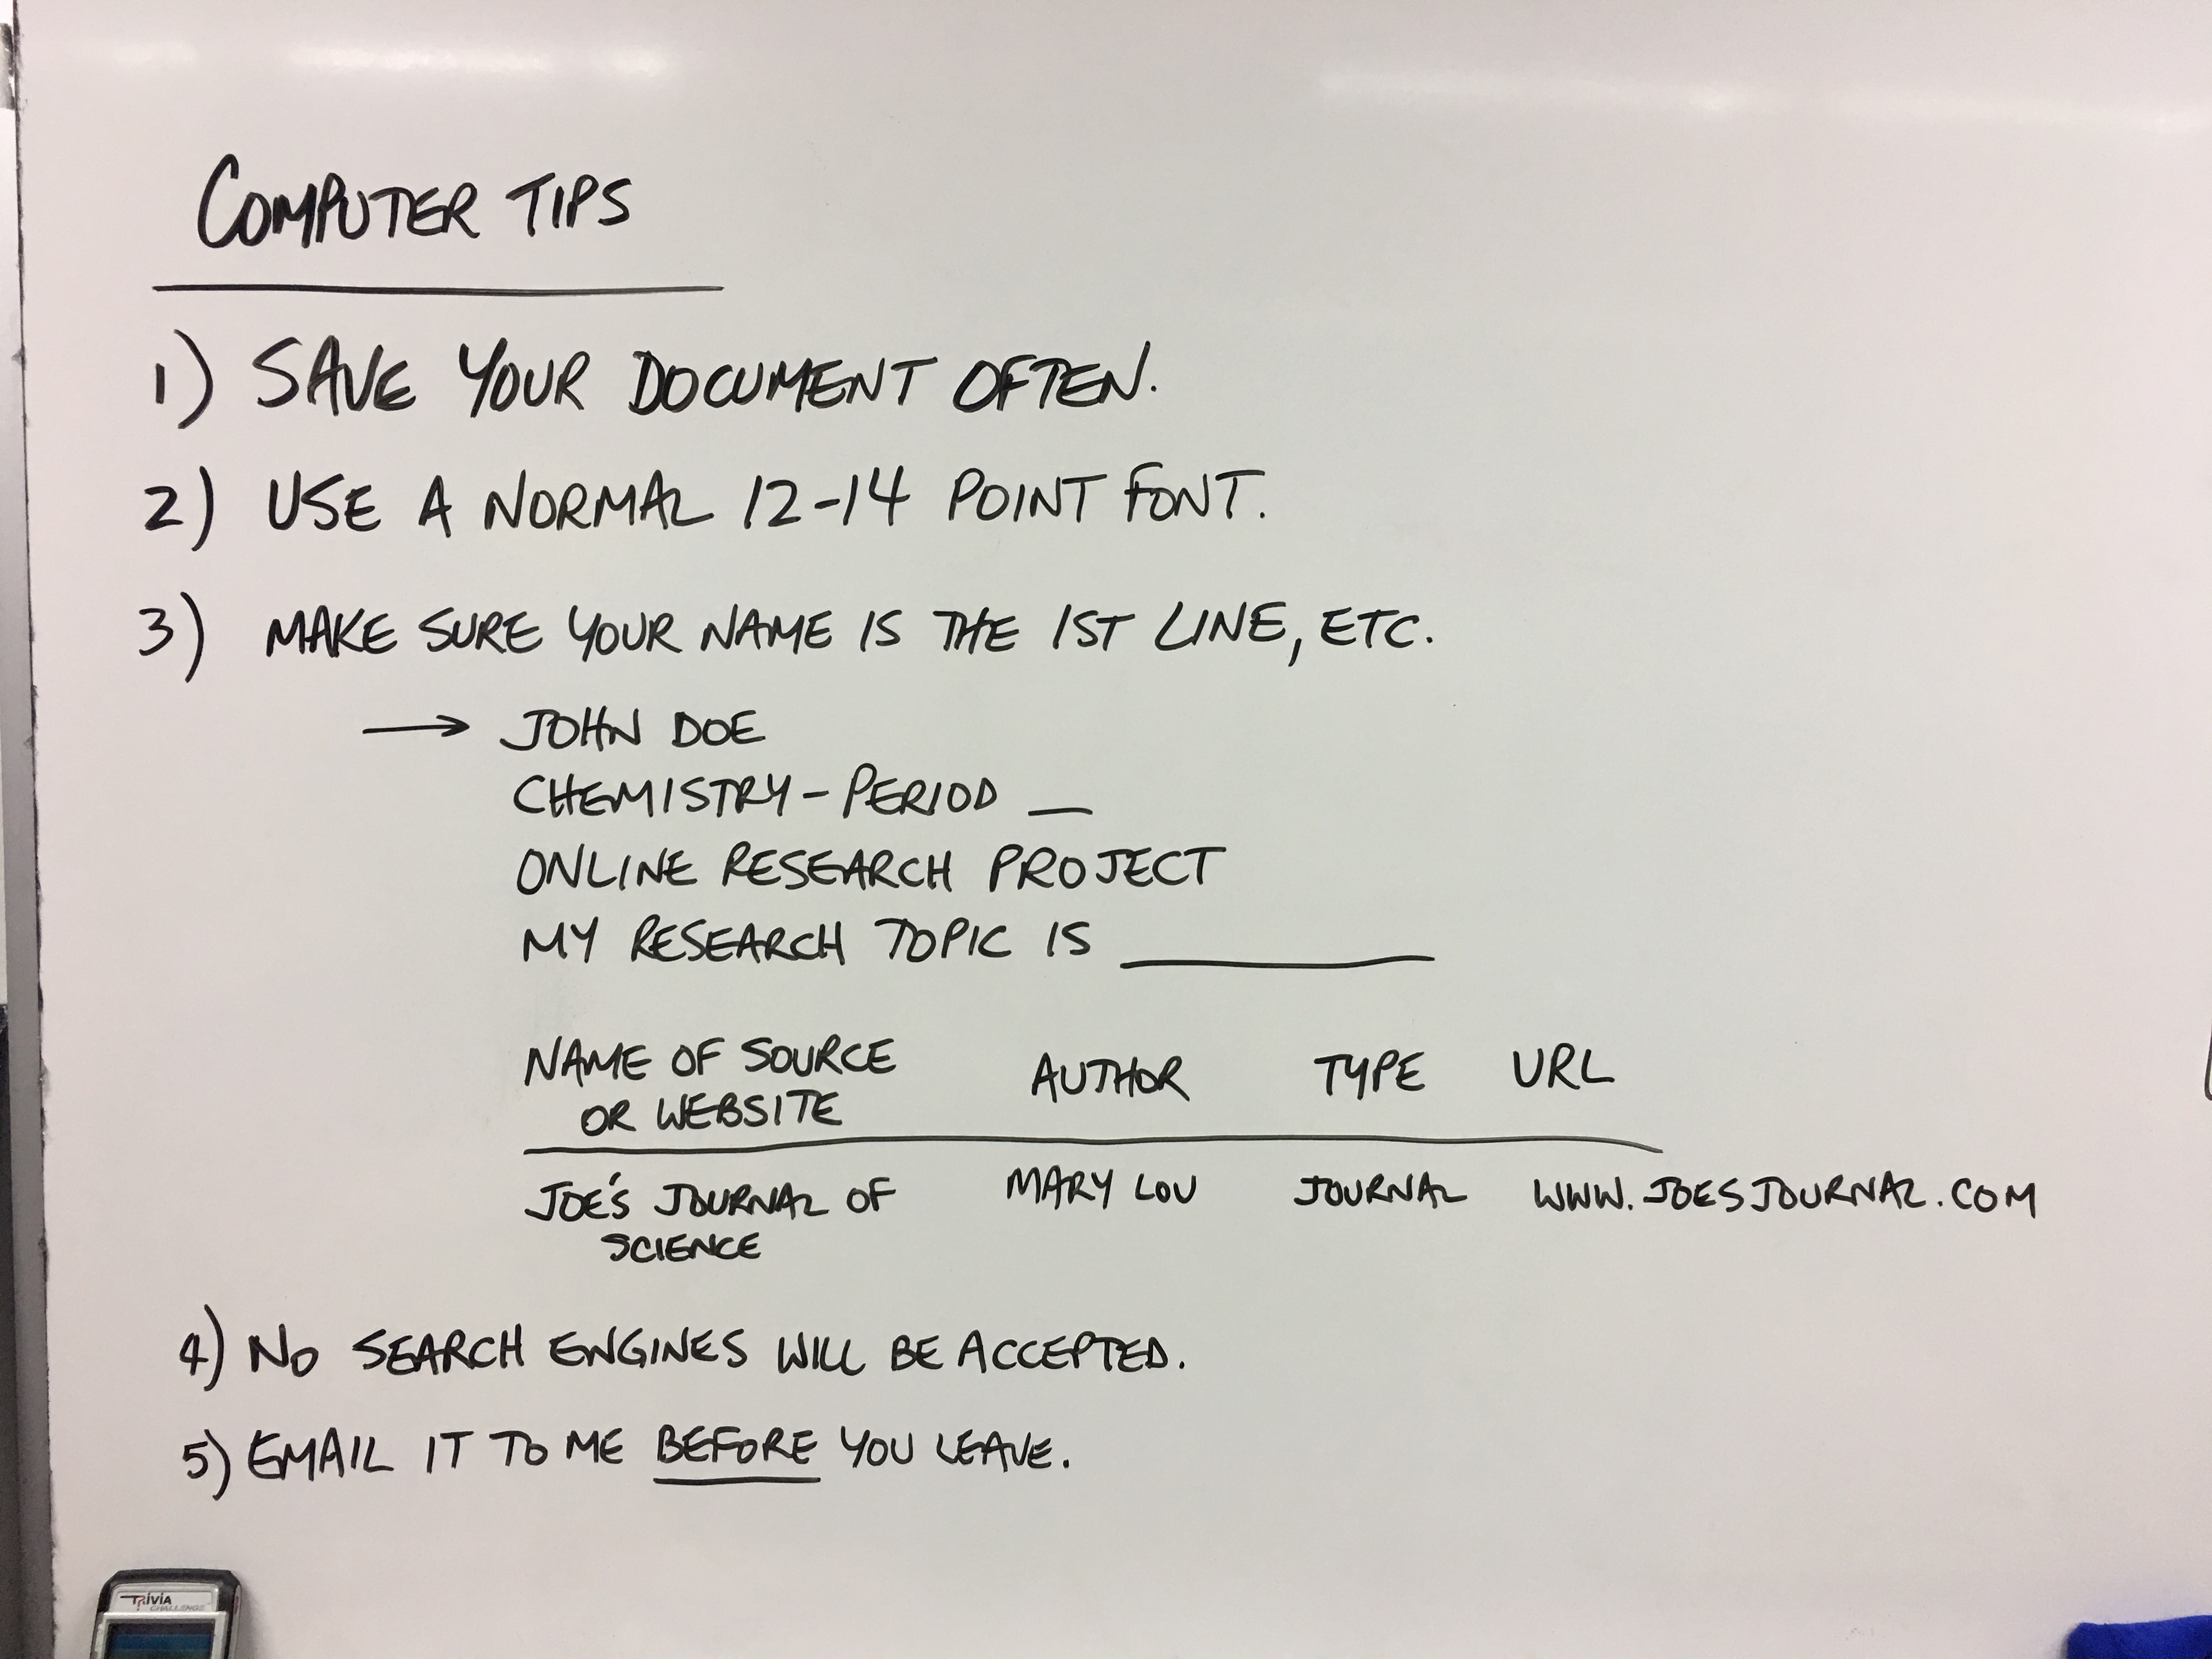 COMPUTER TIPS
1) SAVE YOUR DOCUMENT OFTEN.
2) USE A NORMAL 12-14 POINT FONT.
3) MAKE SURE YOUR NAME IS THE 1ST LINE, ETC.
→ JOHN DOE
CHEMISTRY - PERIOD __
ONLINE RESEARCH PROJECT
MY RESEARCH TOPIC IS ________
NAME OF SOURCE AUTHOR TYPE URL
OR WEBSITE
JOE'S JOURNAL OF MARY LOU JOURNAL WWW.JOESJOURNAL.COM
SCIENCE
4) NO SEARCH ENGINES WILL BE ACCEPTED.
5) EMAIL IT TO ME BEFORE YOU LEAVE.
TRiViA
CHALLENGE